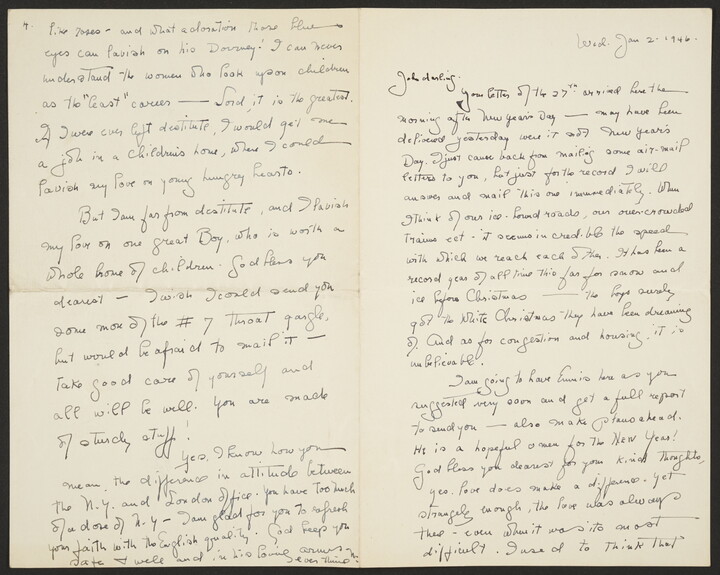 4.
like roses - and what adoration those blue
eyes can lavish on his Dorsney! I can never
understand the women who look upon children
as the "least" careers — Lord, it is the greatest.
If I were ever left destitute, I would get me
a job in a Children's home, where I could
lavish my love on young hungry hearts.
But I am far from destitute, and I lavish
my love on one great Boy, who is worth a
whole home of children. God bless you
dearest — I wish I could send you
some more of the # 7 throat gargle,
but would be afraid to mail it —
take good care of yourself and
all will be well. You are made
of sturdy stuff!
Yes, I know how you
mean, the difference in attitude between
the N.Y. and London office. You have too much
of a dose of N.Y - I am glad for you to refresh
your faith with the English quality. God keep you
safe & well and in his loving arms -
Ever thine -
Wed. Jan 2. 1946.
John darling.
Your letter of the 27th arrived here the
morning after New Year's Day — may have been
delivered yesterday were it not New Year's
Day. I just came back from mailing some air-mail
letters to you, but just for the record I will
answer and mail this one immediately. When
I think of our ice-bound roads, our over-crowded
trains ect - it seems incredible the speed
with which we reach each other. It has been a
record year of all time this far for snow and
ice before Christmas — the boys surely
got the White Christmas they have been dreaming
of. And as for congestion and housing, it is
unbelievable.
I am going to have Ennis here as you
suggested very soon and get a full report
to send you — also make plans ahead.
He is a hopeful omen for the New Year!
God bless you dearest for your kind thoughts,
yes. love does make a difference. Yet
strangely enough, the love was always
there - even when it was its most
difficult. I used to think that